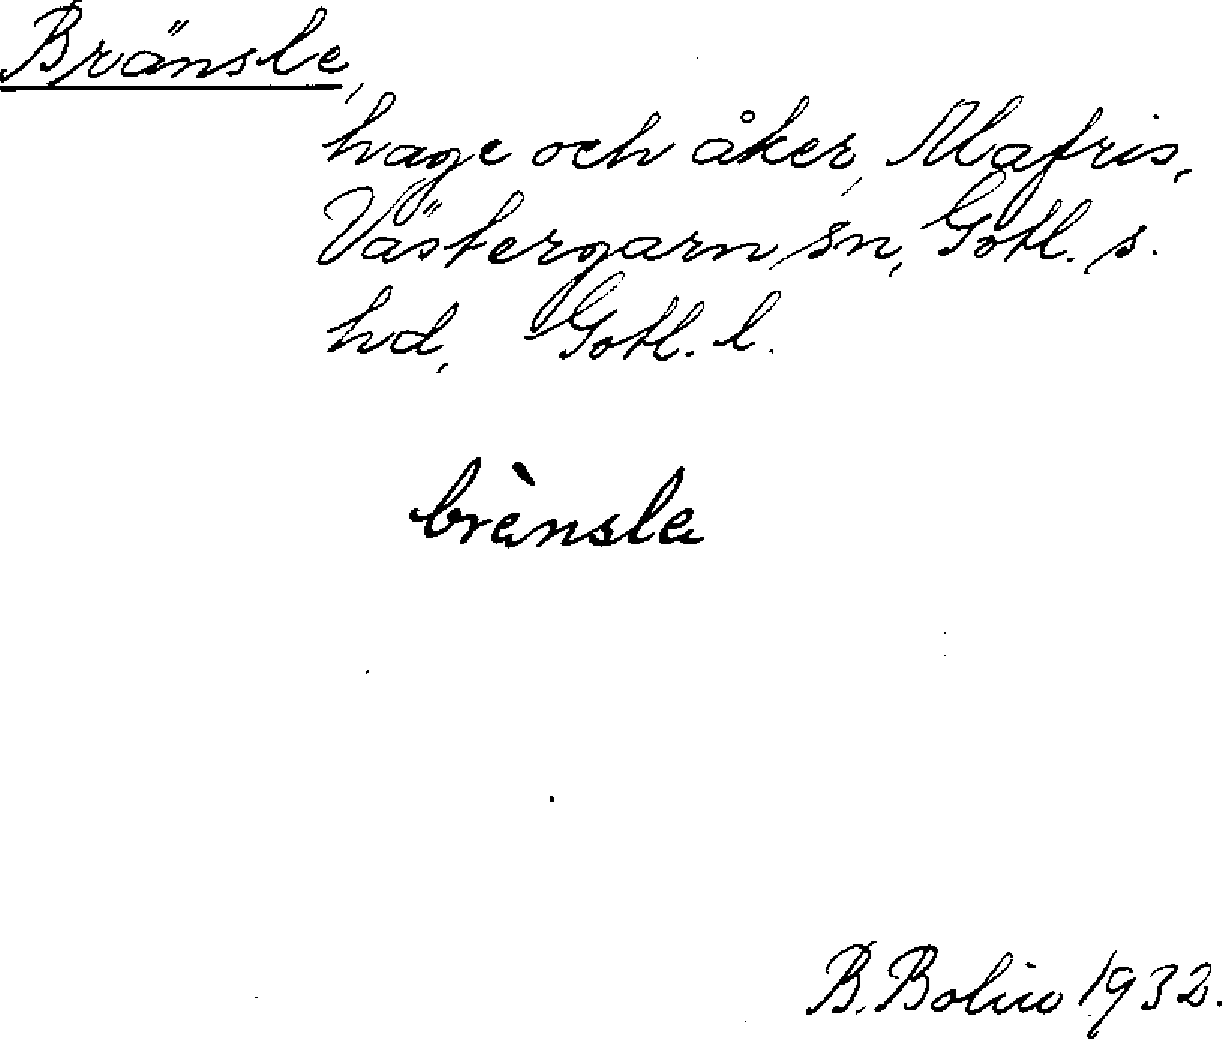 Bränsle,
hage och åker, Mafris,
Västergarn sn, Gotl. s.
hd, Gotl. l.
brènsla
B. Bolin 1932.